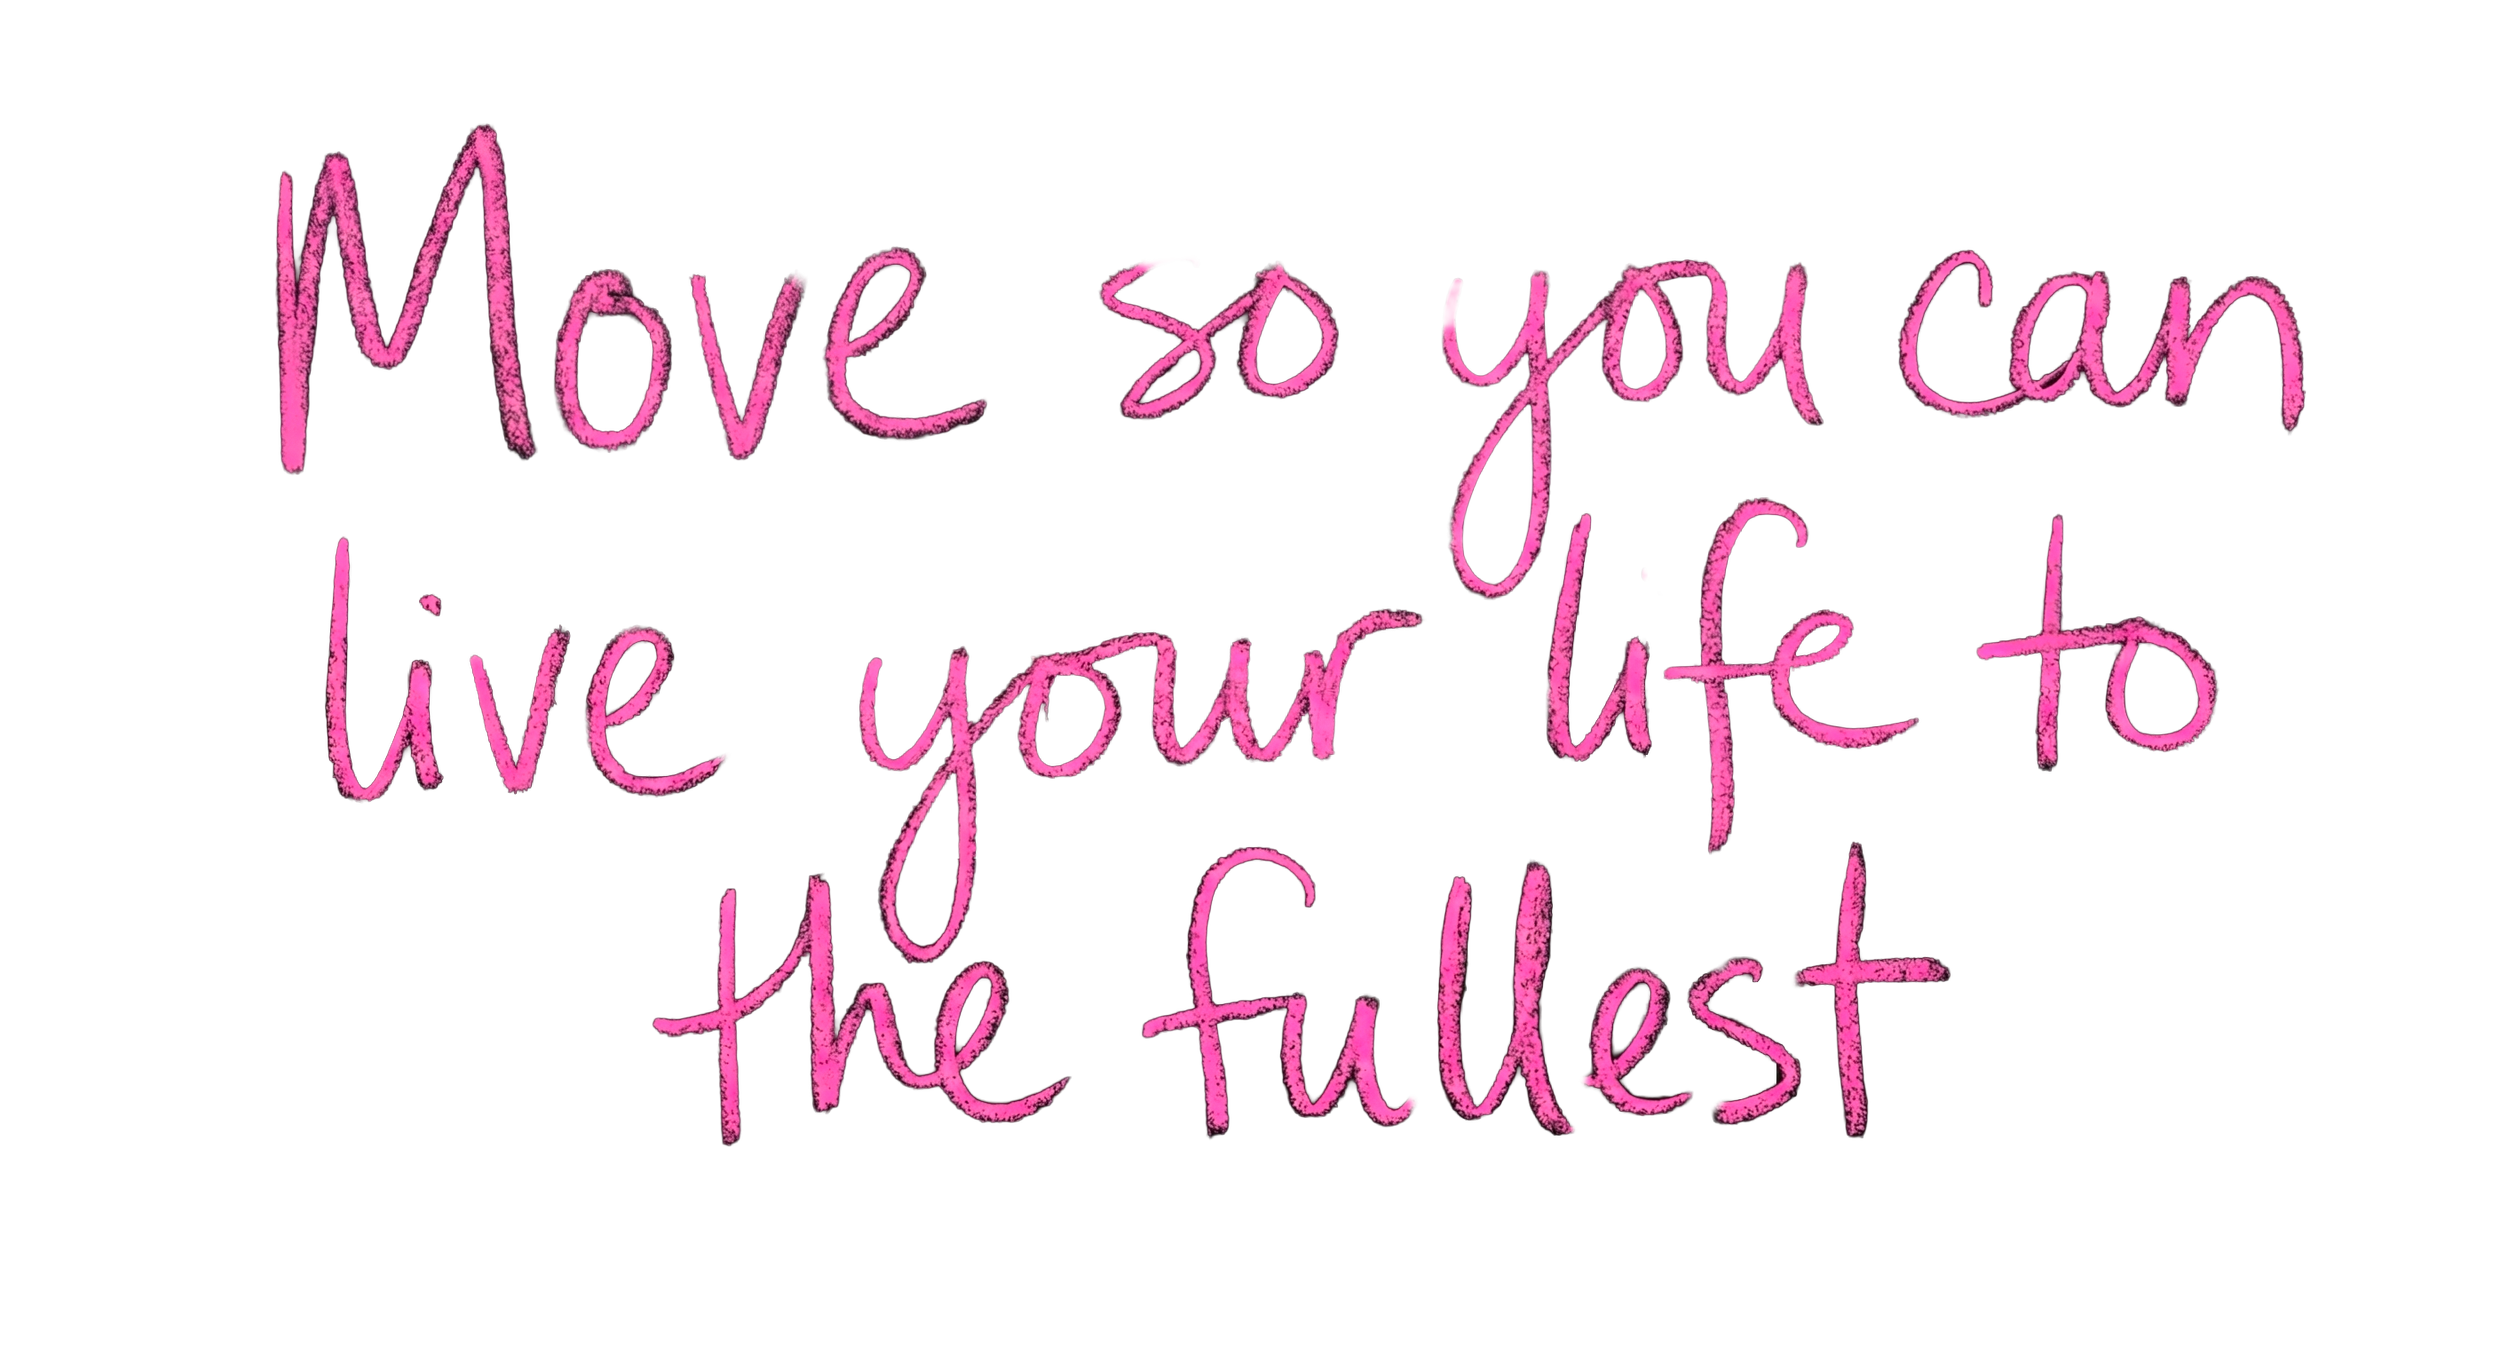 Move so you can
live your life to
the fullest